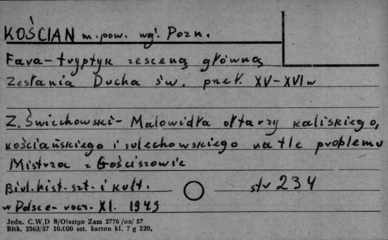 KOŚCIAN m. pow. wgł. Pozn.
Fara - tryptyk ze sceną główną
Zesłania Ducha św. przeł. XV-XVI w
Z. Świechowski - Malowidła ołtarzy kaliskiego,
kościańskiego i sulechowskiego na tle problemu
Mistrza z Gościszowic
Biul. hist. szt. i kult. str 234
w Polsce - rocz. XI. 1949
Jedn. C.W.D B/Olsztyn Zam 2776/on/57
Bltk. 2363/57 10.000 szt. karton kl. 7 g 220,